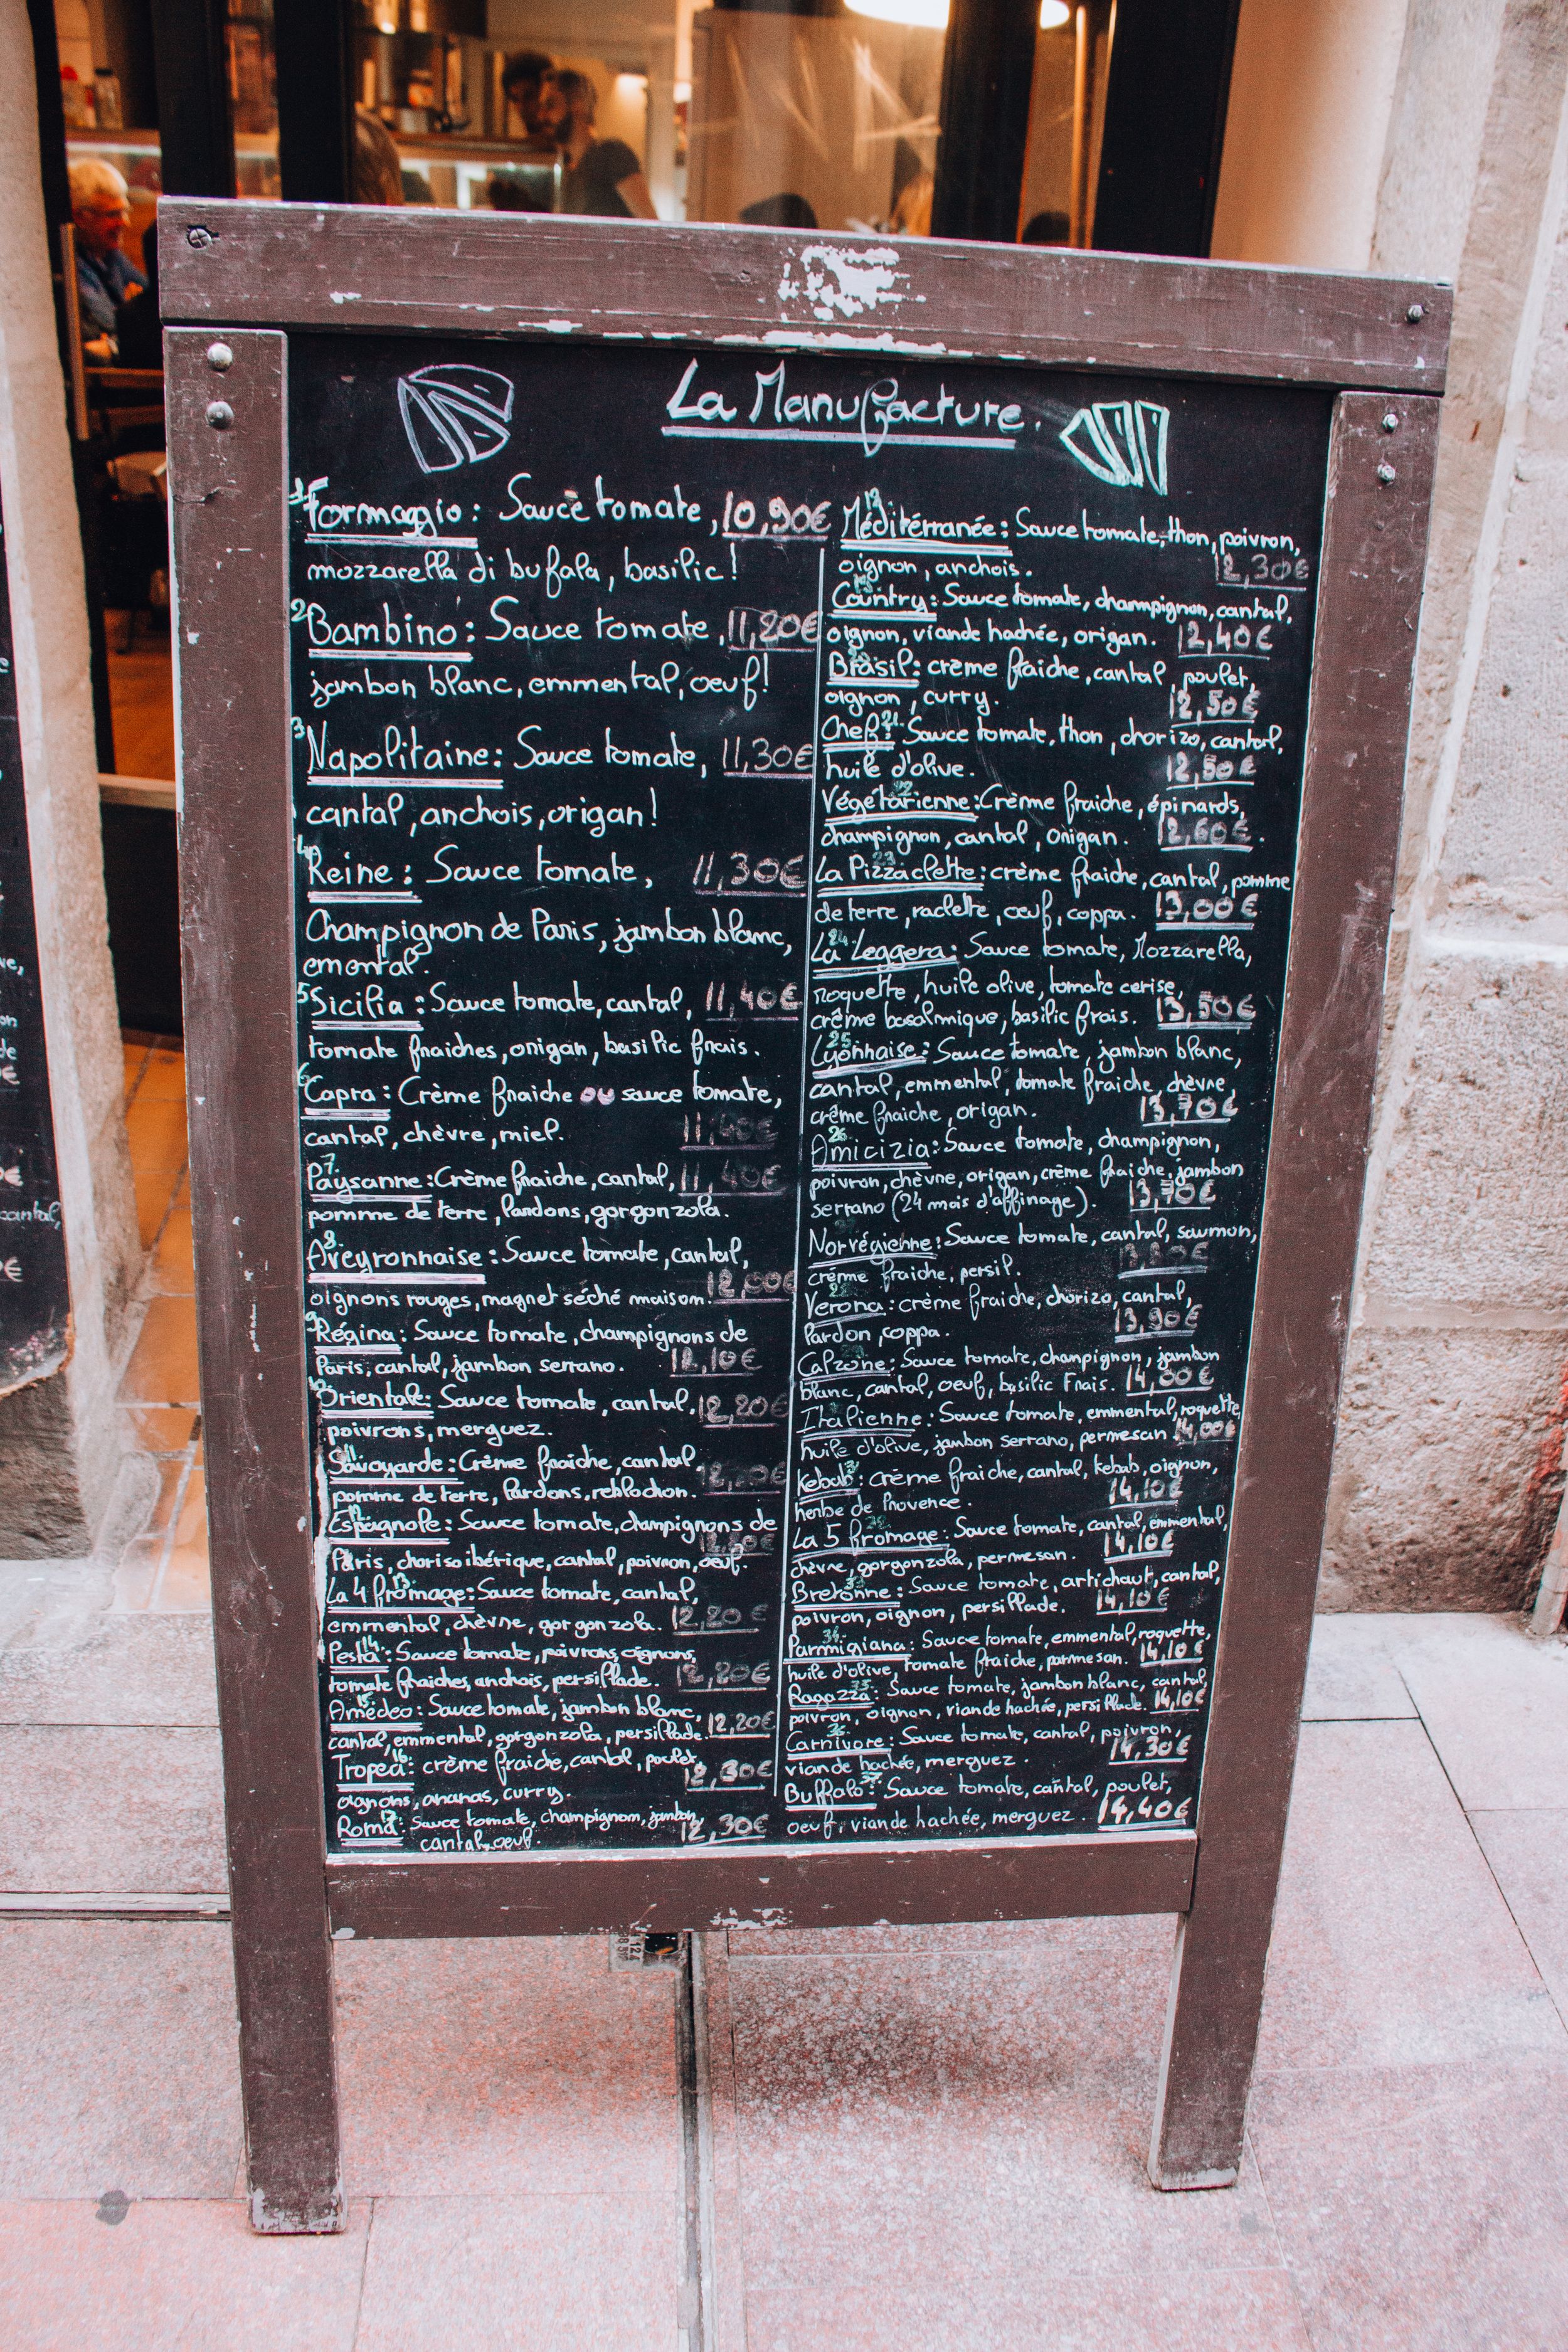 La Manufacture.
1 Formaggio : Sauce tomate, 10,90€
mozzarella di bufala, basilic !
2 Bambino : Sauce tomate, 11,20€
jambon blanc, emmental, oeuf !
3 Napolitaine : Sauce tomate, 11,30€
cantal, anchois, origan !
4 Reine : Sauce tomate, 11,30€
Champignon de Paris, jambon blanc,
emental.
5 Sicilia : Sauce tomate, cantal, 11,40€
tomate fraiches, origan, basilic frais.
6 Capra : Crème fraiche ou sauce tomate,
cantal, chèvre, miel. 11,40€
7 Paysanne : Crème fraiche, cantal, 11,40€
pomme de terre, lardons, gorgonzola.
8 Aveyronnaise : Sauce tomate, cantal,
oignons rouges, magret séché maison. 12,00€
9 Régina : Sauce tomate, champignons de
Paris, cantal, jambon serrano. 12,10€
10 Orientale : Sauce tomate, cantal, 12,20€
poivrons, merguez.
11 Savoyarde : Crème fraiche, cantal
pomme de terre, lardons, reblochon.
12 Espagnole : Sauce tomate, champignons de
Paris, choriso ibérique, cantal, poivron, oeuf. 12,20€
La 4 fromage : 13 Sauce tomate, cantal,
emmental, chèvre, gorgonzola. 12,20€
14 Sauce tomate, poivrons, oignons,
tomate fraiches, anchois, persillade. 12,20€
15 Amédéo : Sauce tomate, jambon blanc,
cantal, emmental, gorgonzola, persillade. 12,20€
16 Tropea : crème fraiche, cantal, poulet,
oignons, ananas, curry. 12,30€
17 Roma : Sauce tomate, champignon, jambon,
cantal, oeuf. 12,30€
Méditérranée : Sauce tomate, thon, poivron,
oignon, anchois. 12,30€
Country : Sauce tomate, champignon, cantal,
oignon, viande hachée, origan. 12,40€
Brasil : crème fraiche, cantal, poulet,
oignon, curry. 12,50€
Chef : 21 Sauce tomate, thon, chorizo, cantal,
huile d'olive. 12,50€
22 Végétarienne : Crème fraiche, épinards,
champignon, cantal, origan. 12,60€
23 La Pizzaclette : crème fraiche, cantal, pomme
de terre, raclette, oeuf, coppa. 13,00€
24 La Leggera : Sauce tomate, Mozzarella,
roquette, huile olive, tomate cerise,
crème basalmique, basilic frais. 13,50€
25 Lyonnaise : Sauce tomate, jambon blanc,
cantal, emmental, tomate fraiche, chèvre,
crème fraiche, origan. 13,70€
26 Amicizia : Sauce tomate, champignon,
poivron, chèvre, origan, crème fraiche, jambon
serrano (24 mois d'affinage). 13,70€
Norvégienne : Sauce tomate, cantal, saumon,
crème fraiche, persil.
Verona : crème fraiche, chorizo, cantal,
lardon, coppa. 13,90€
Calzone : Sauce tomate, champignon, jambon
blanc, cantal, oeuf, basilic Frais. 14,00€
Italienne : Sauce tomate, emmental, roquette,
huile d'olive, jambon serrano, permesan 14,00€
Kebab : crème fraiche, cantal, kebab, oignon,
herbe de Provence. 14,10€
La 5 fromage : Sauce tomate, cantal, emmental,
chèvre, gorgonzola, permesan. 14,10€
33 Bretonne : Sauce tomate, artichaut, cantal,
poivron, oignon, persillade. 14,10€
34 Parmigiana : Sauce tomate, emmental, roquette,
huile d'olive, tomate fraiche, parmesan. 14,10€
35 Ragazza : Sauce tomate, jambon blanc, cantal,
poivron, oignon, viande hachée, persillade. 14,10€
36 Carnivore : Sauce tomate, cantal, poivron,
viande hachée, merguez. 14,30€
37 Buffalo : Sauce tomate, cantal, poulet,
oeuf, viande hachée, merguez 14,40€
cantal,